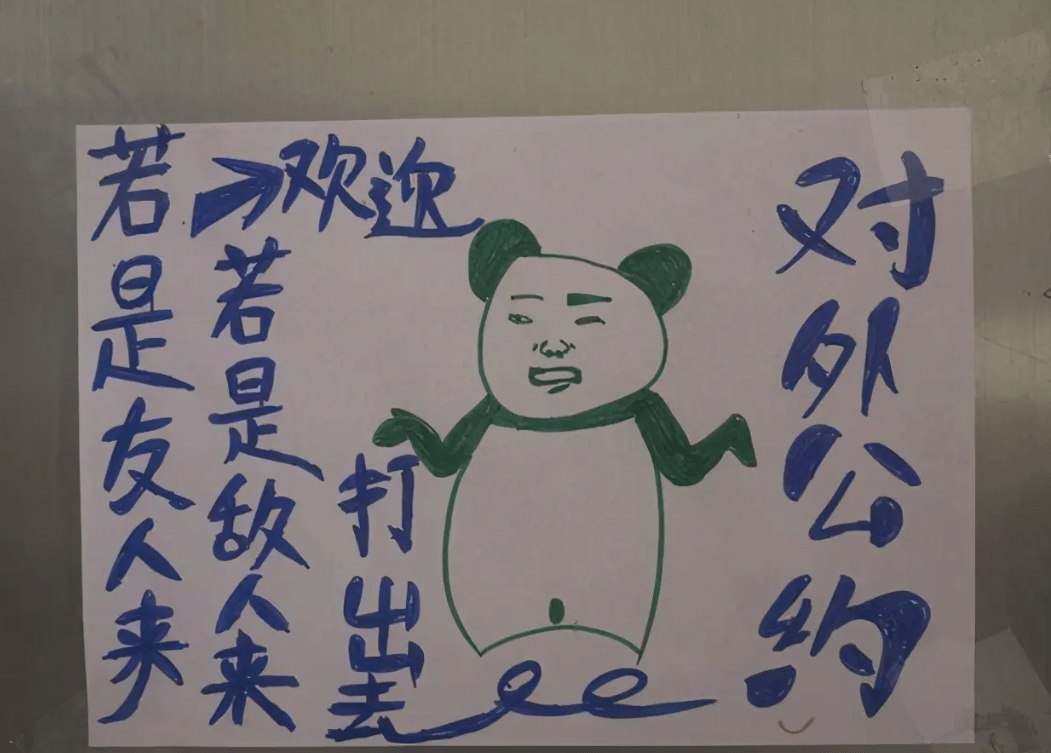 对外公约
若是友人来
→欢迎
若是敌人来
打出去